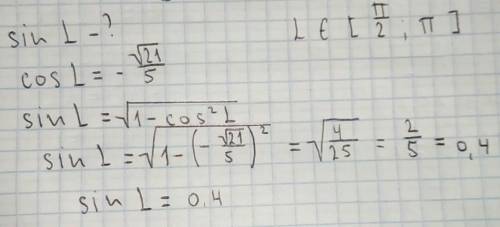 sin L - ? L ∈ [π/2 ; π]
cos L = - √21/5
sin L = √(1 - cos² L)
sin L = √(1 - (- √21/5)²) = √(4/25) = 2/5 = 0,4
sin L = 0,4